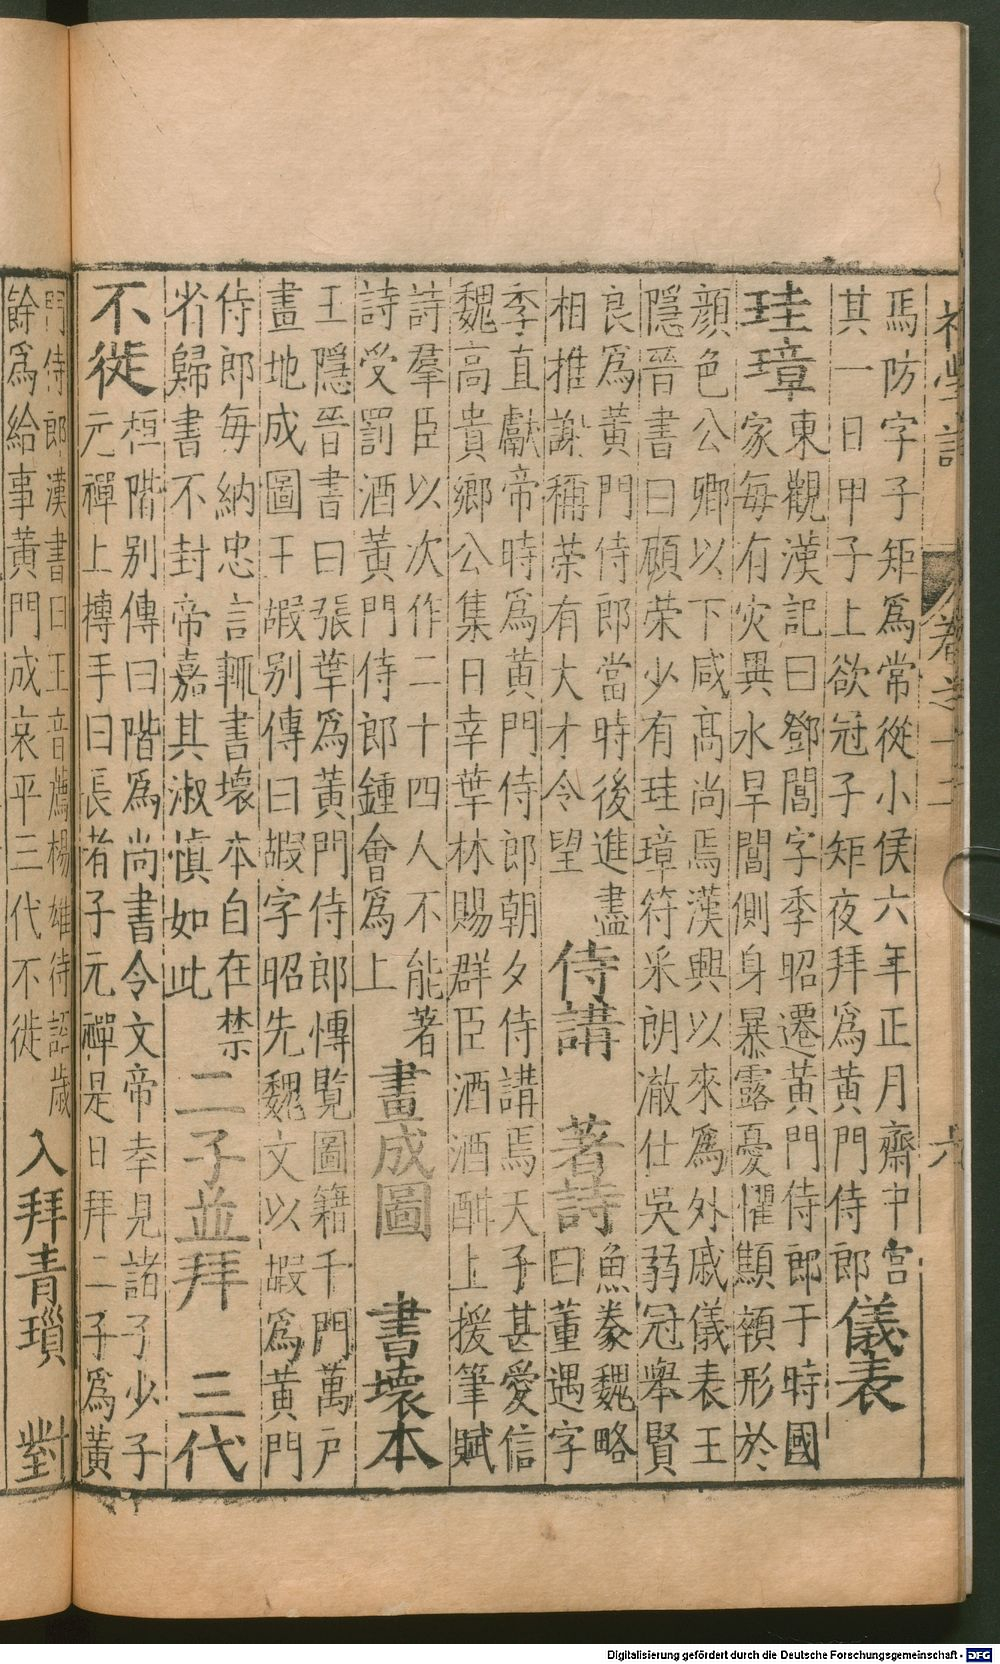 焉防字子矩爲常從小侯六年正月齋中宮
其一日甲子上欲冠子矩夜拜爲黄門侍郎
儀表
東觀漢記曰鄧閶字季昭遷黄門侍郎于時國
家每有灾異水旱閶側身暴露憂懼顯顇形於
珪璋
顔色公卿以下咸髙尚焉漢興以來爲外戚儀表王
隱晉書曰頋榮少有珪璋符采朗澈仕吳弱冠舉賢
良爲黄門侍郎當時後進盡
相推謝稱荣有大才令望
侍講
著詩
魚豢魏略
曰董遇字
季直獻帝時爲黄門侍郎朝夕侍講焉天子甚愛信
魏高貴鄉公集日幸華林賜群臣酒酒酣上援筆賦
詩羣臣以次作二十四人不能著
詩受罰酒黄門侍郎鍾會爲上
畫成圖
書壞本
王隱晉書曰張華爲黄門侍郎慱覧圖籍千門萬戸
畫地成圖王嘏别傳曰嘏字昭先魏文以嘏爲黄門
侍郎每納忠言輒書壞本自在禁
省歸書不封帝嘉其淑慎如此
二子並拜
三代
不徙
桓階别傳曰階爲尚書令文帝幸見諸子少子
元禪上摶手曰長者子元禪是日拜二子爲黄
門侍郎漢書曰王音薦楊雄待詔歳
餘爲給事黄門成哀平三代不徙
入拜青瑣
對
卷之十二
六
Digitalisierung gefördert durch die Deutsche Forschungsgemeinschaft - DFG